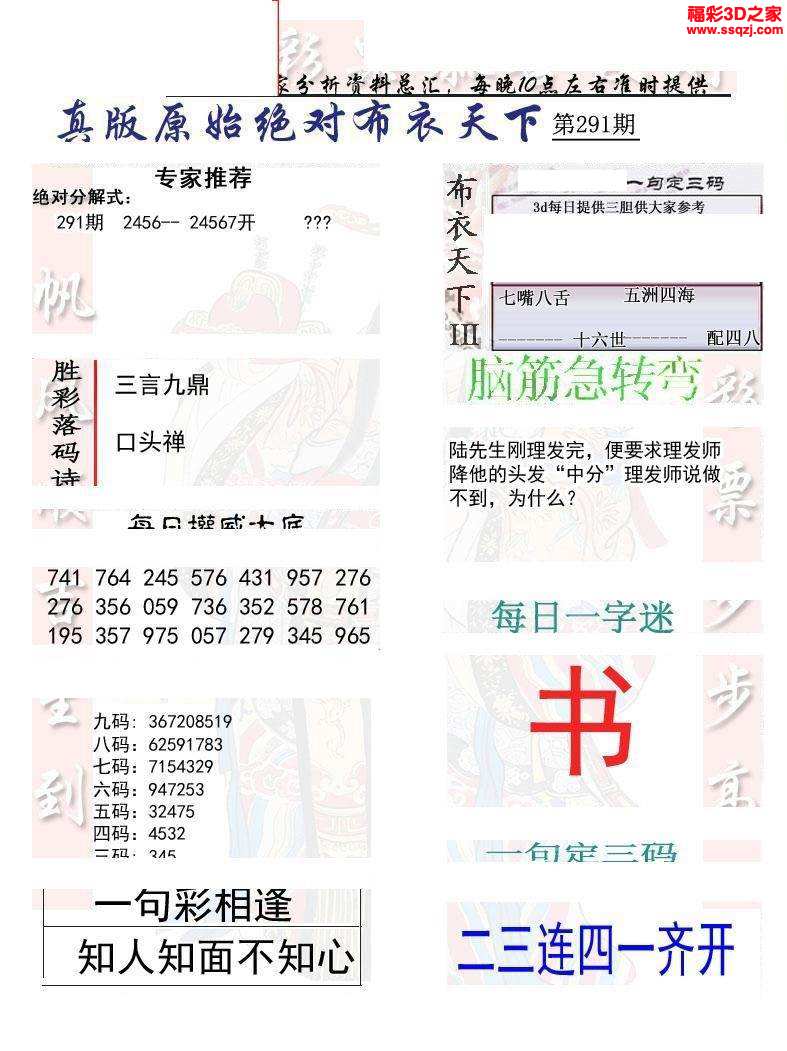 福彩3D之家
www.ssqzj.com
家分析资料总汇，每晚10点左右准时提供
真版原始绝对布衣天下 第291期
专家推荐
绝对分解式：
291期 2456-- 24567开 ???
帆
胜彩落码诗
三言九鼎
口头禅
每日权威大底
741 764 245 576 431 957 276
276 356 059 736 352 578 761
195 357 975 057 279 345 965
九码: 367208519
八码: 62591783
七码: 7154329
六码: 947253
五码: 32475
四码: 4532
三码: 345
到
一句彩相逢
知人知面不知心
布衣天下III
一句定三码
3d每日提供三胆供大家参考
七嘴八舌 五洲四海
------- 十六世------- 配四八
脑筋急转弯
彩
票
陆先生刚理发完，便要求理发师
降他的头发“中分”理发师说做
不到，为什么？
每日一字迷
书
步
高
一句定三码
二三连四一齐开